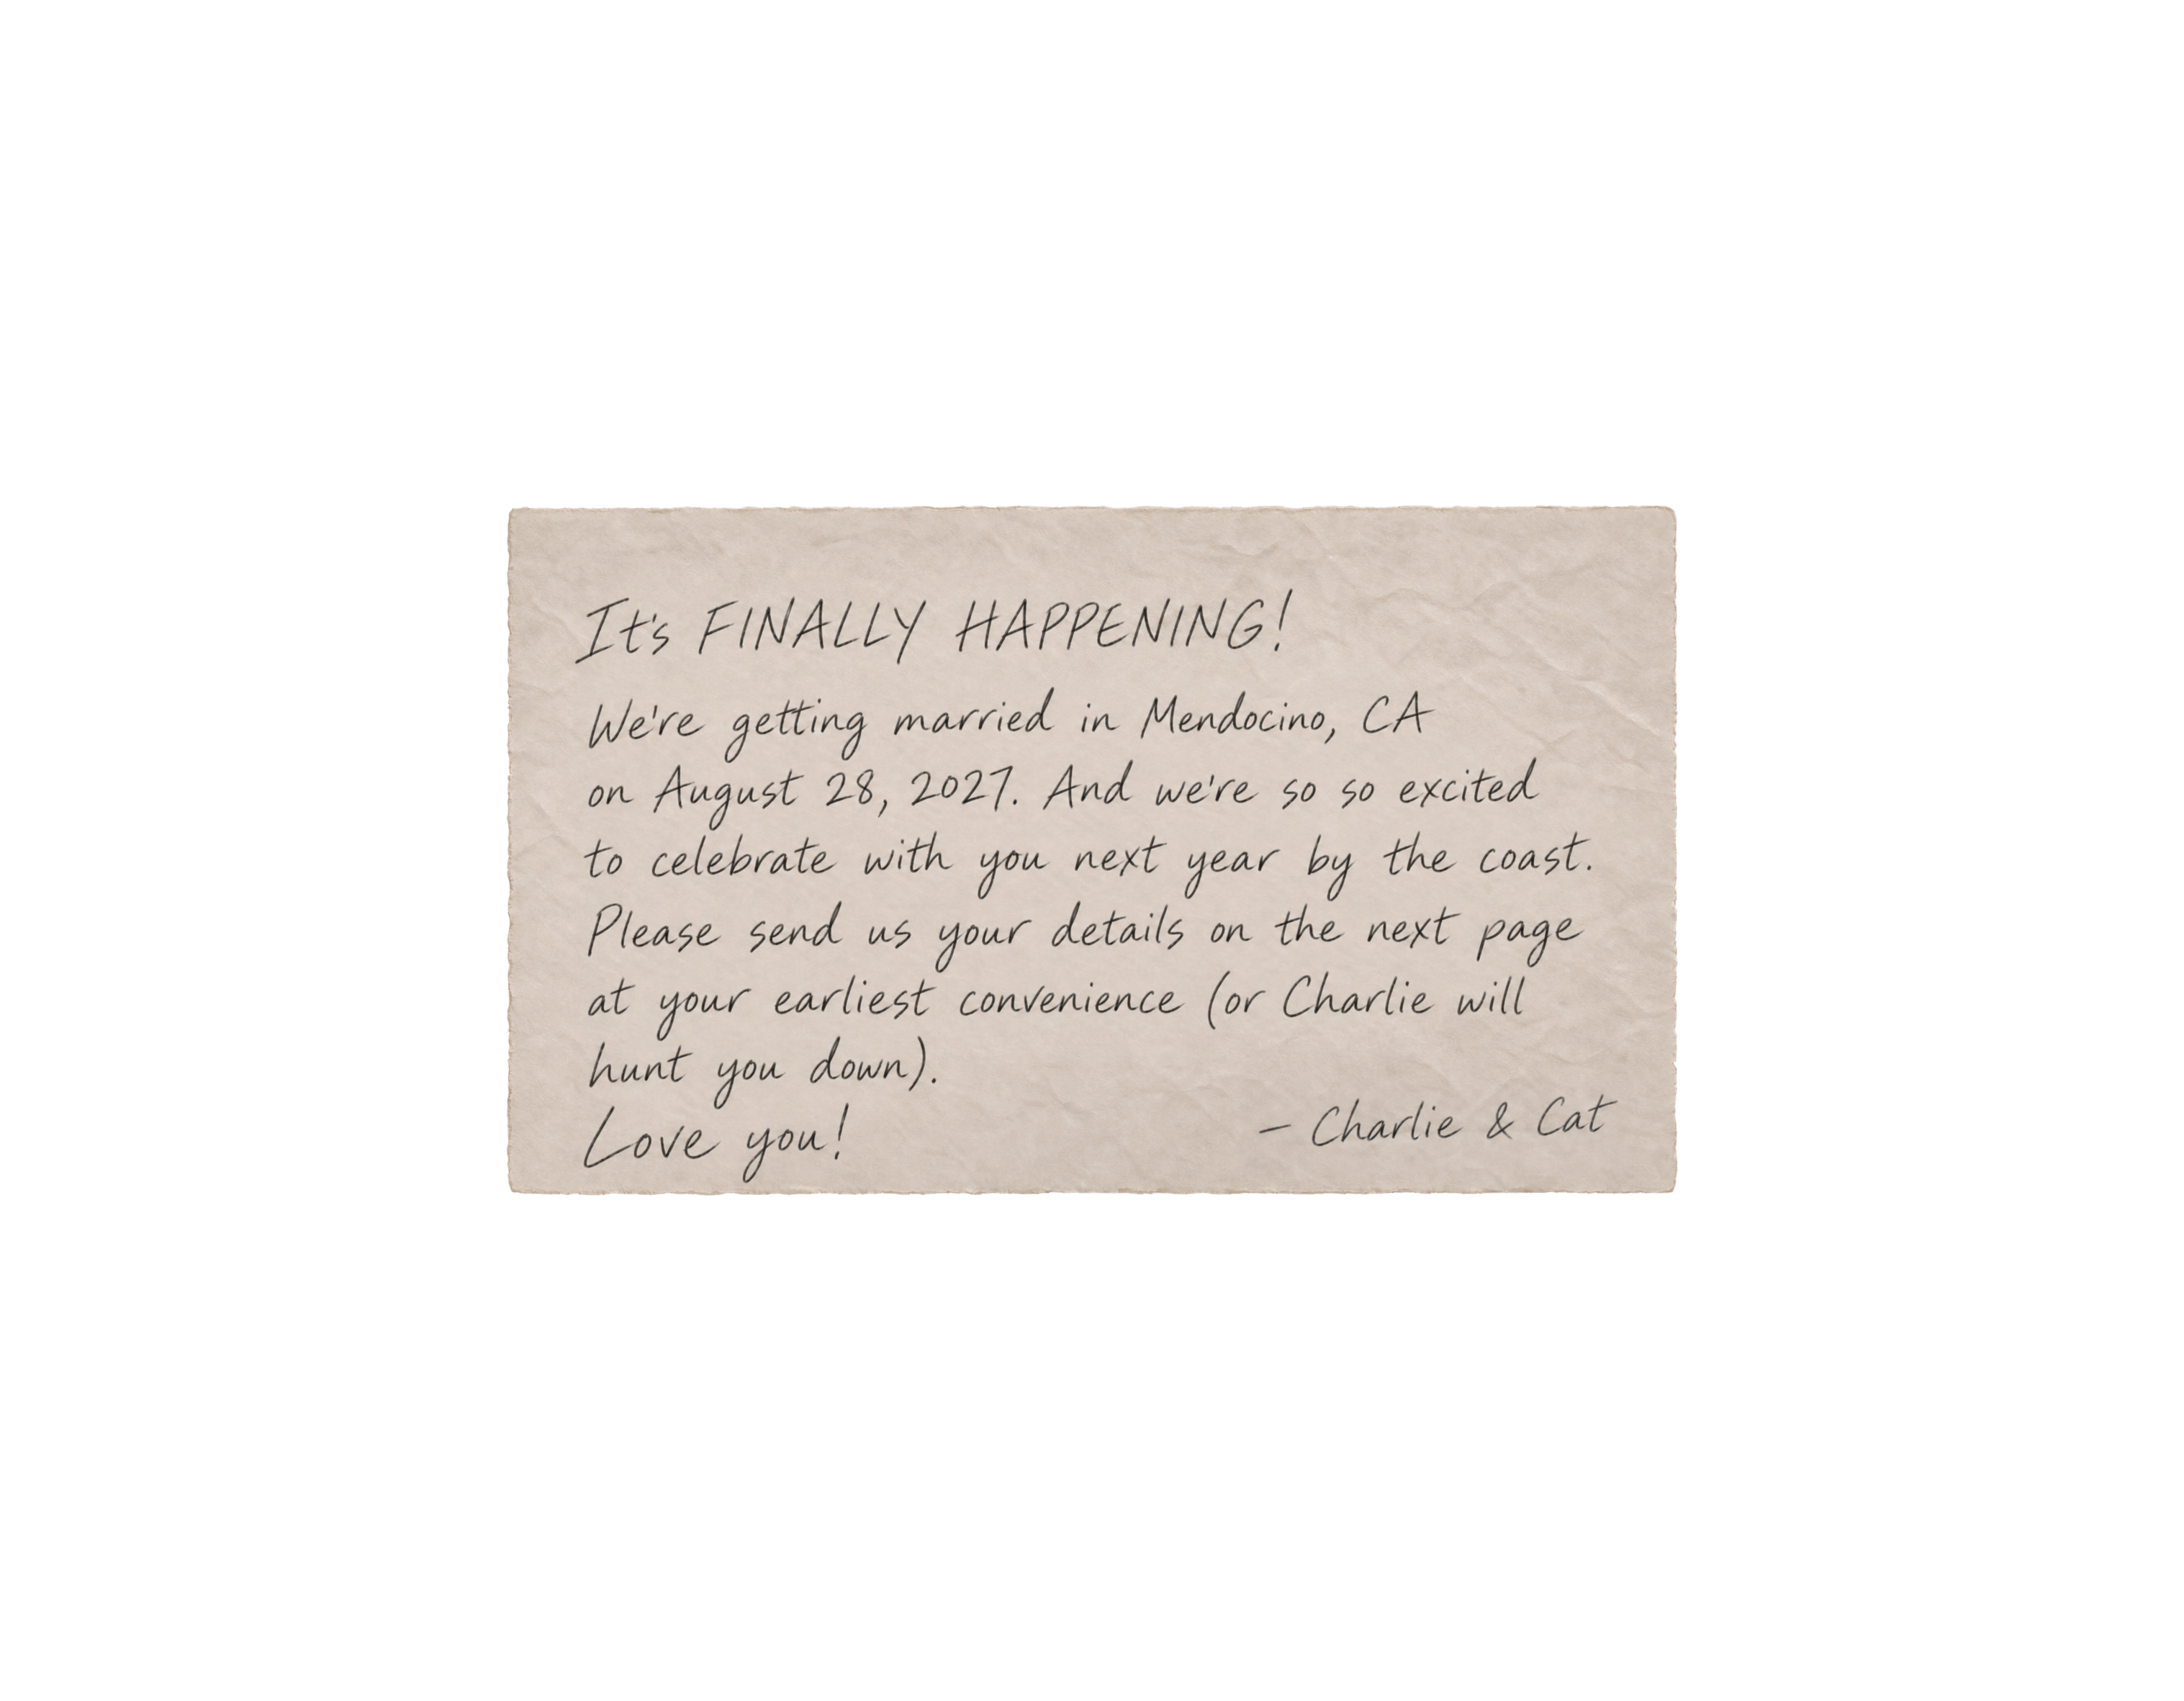 It's FINALLY HAPPENING!
We're getting married in Mendocino, CA
on August 28, 2027. And we're so so excited
to celebrate with you next year by the coast.
Please send us your details on the next page
at your earliest convenience (or Charlie will
hunt you down).
Love you!
– Charlie & Cat